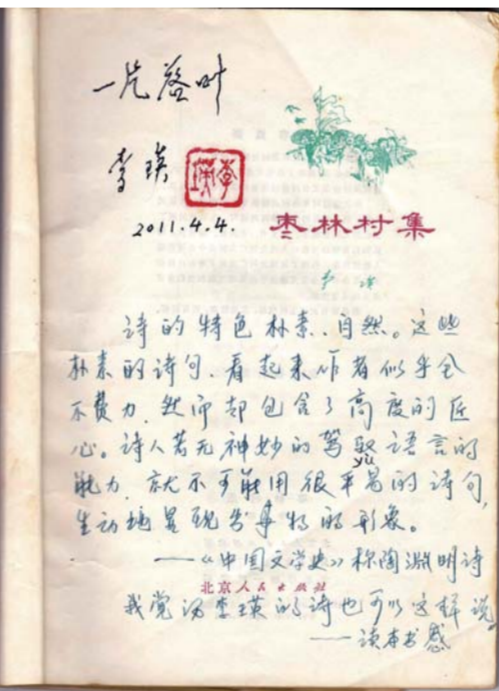 一片落叶
李瑛
李瑛
2011.4.4.
枣林村集
李瑛
诗的特色朴素、自然。这些
朴素的诗句、看起来作者似乎全
不费力，然而却包含了高度的匠
心。诗人若无神妙的驾驭语言的
yù
能力，就不可能用很平易的诗句，
生动地呈现出事物的形象。
——《中国文学史》称陶渊明诗
北京人民出版社
我觉得李瑛的诗也可以这样说。
——读本书感